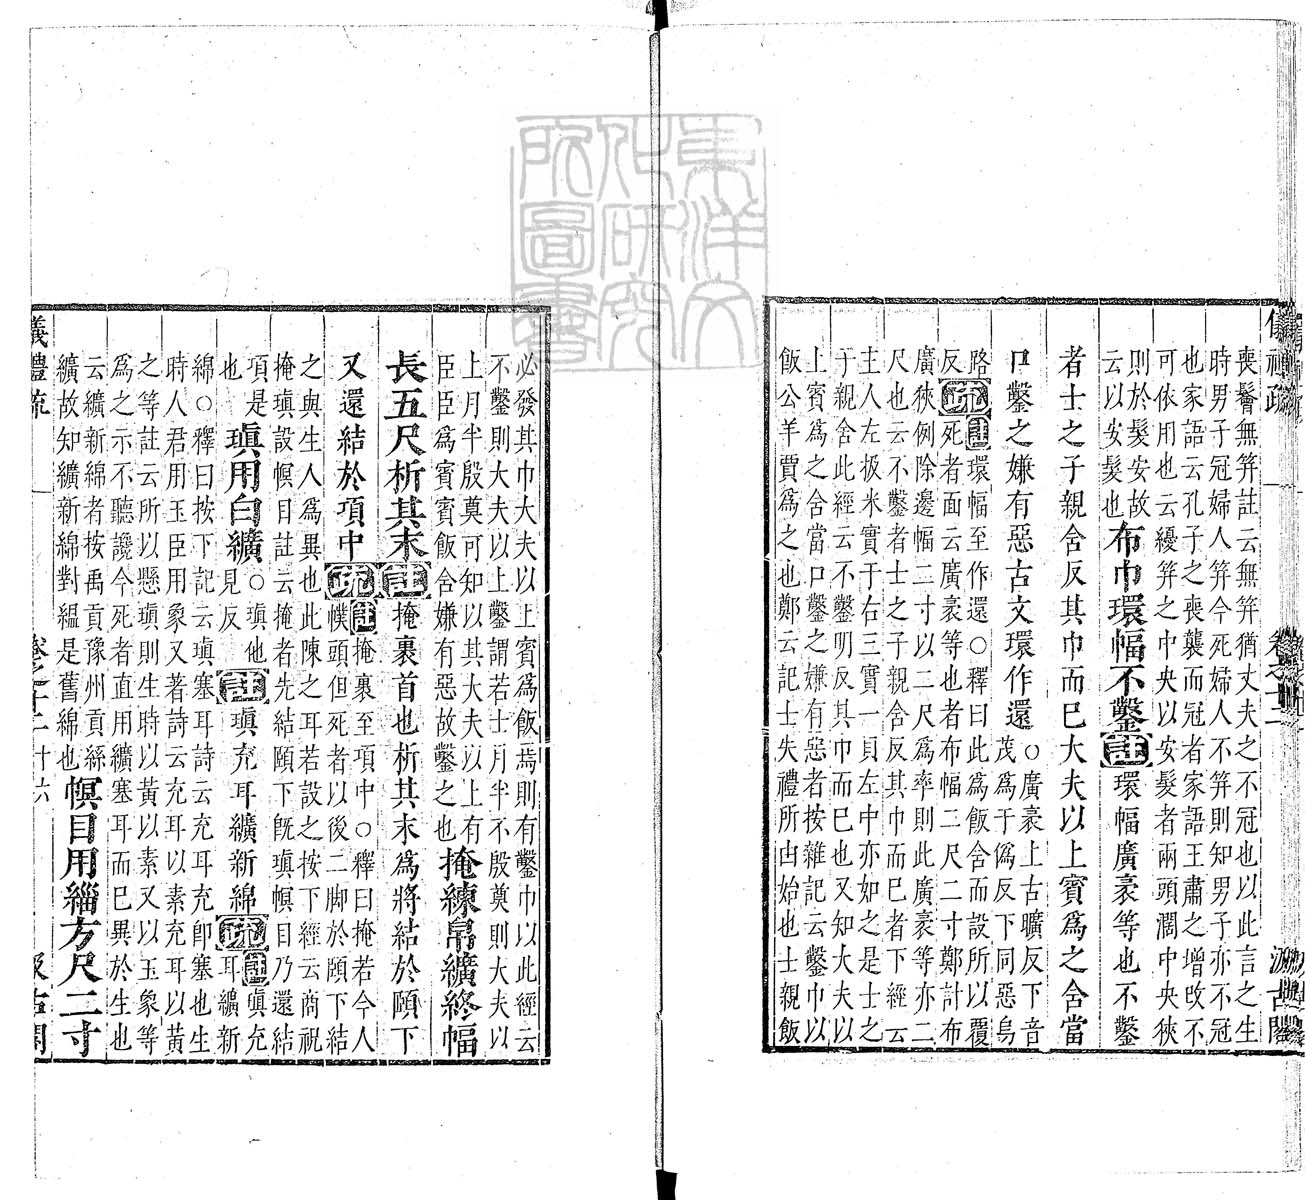 喪髺無筓註云無筓猶丈夫之不冠也以此言之生
時男子冠婦人筓今死婦人不筓則知男子亦不冠
也家語云孔子之喪襲而冠者家語王肅之增攺不
可依用也云纋筓之中央以安髮者兩頭濶中央狹
則於髮安故
云以安髮也
布巾環幅不鑿註環幅廣袤等也不鑿
者士之子親含反其巾而已大夫以上賓爲之含當
口鑿之嫌有惡古文環作還
○廣袤上古曠反下音
茂爲于僞反下同惡烏
路
反
疏註環幅至作還○釋曰此爲飯含而設所以覆
死者面云廣袤等也者布幅二尺二寸鄭計布
廣狹例除邊幅二寸以二尺爲率則此廣袤等亦二
尺也云不鑿者士之子親含反其巾而已者下經云
主人左扱米實于右三實一貝左中亦如之是士之
子親含此經云不鑿明反其巾而已也又知大夫以
上賓爲之含當口鑿之嫌有惡者按雜記云鑿巾以
飯公羊賈爲之也鄭云記士失禮所由始也士親飯
必發其巾大夫以上賓爲飯焉則有鑿巾以此經云
不鑿則大夫以上鑿謂若士月半不殷奠則大夫以
上月半殷奠可知以其大夫以上有
臣臣爲賓賓飯含嫌有惡故鑿之也
掩練帛纊終幅
長五尺析其末註掩裹首也析其末爲將結於頤下
又還結於項中
疏註掩裹至項中○釋曰掩若今人
幞頭但死者以後二脚於頤下結
之與生人爲異也此陳之耳若設之按下經云商祝
掩瑱設幎目註云掩者先結頤下旣瑱幎目乃還結
項是
也
瑱用白纊
○瑱他
見反
註瑱充耳纊新綿
疏註瑱充
耳纊新
綿○釋曰按下記云瑱塞耳詩云充耳充卽塞也生
時人君用玉臣用象又著詩云充耳以素充耳以黃
之等註云所以懸瑱則生時以黃以素又以玉象等
爲之示不聽讒今死者直用纊塞耳而已異於生也
云纊新綿者按禹貢豫州貢絲
纊故知纊新綿對縕是舊綿也
幎目用緇方尺二寸
儀禮疏
卷之十二
十六
汲古閣